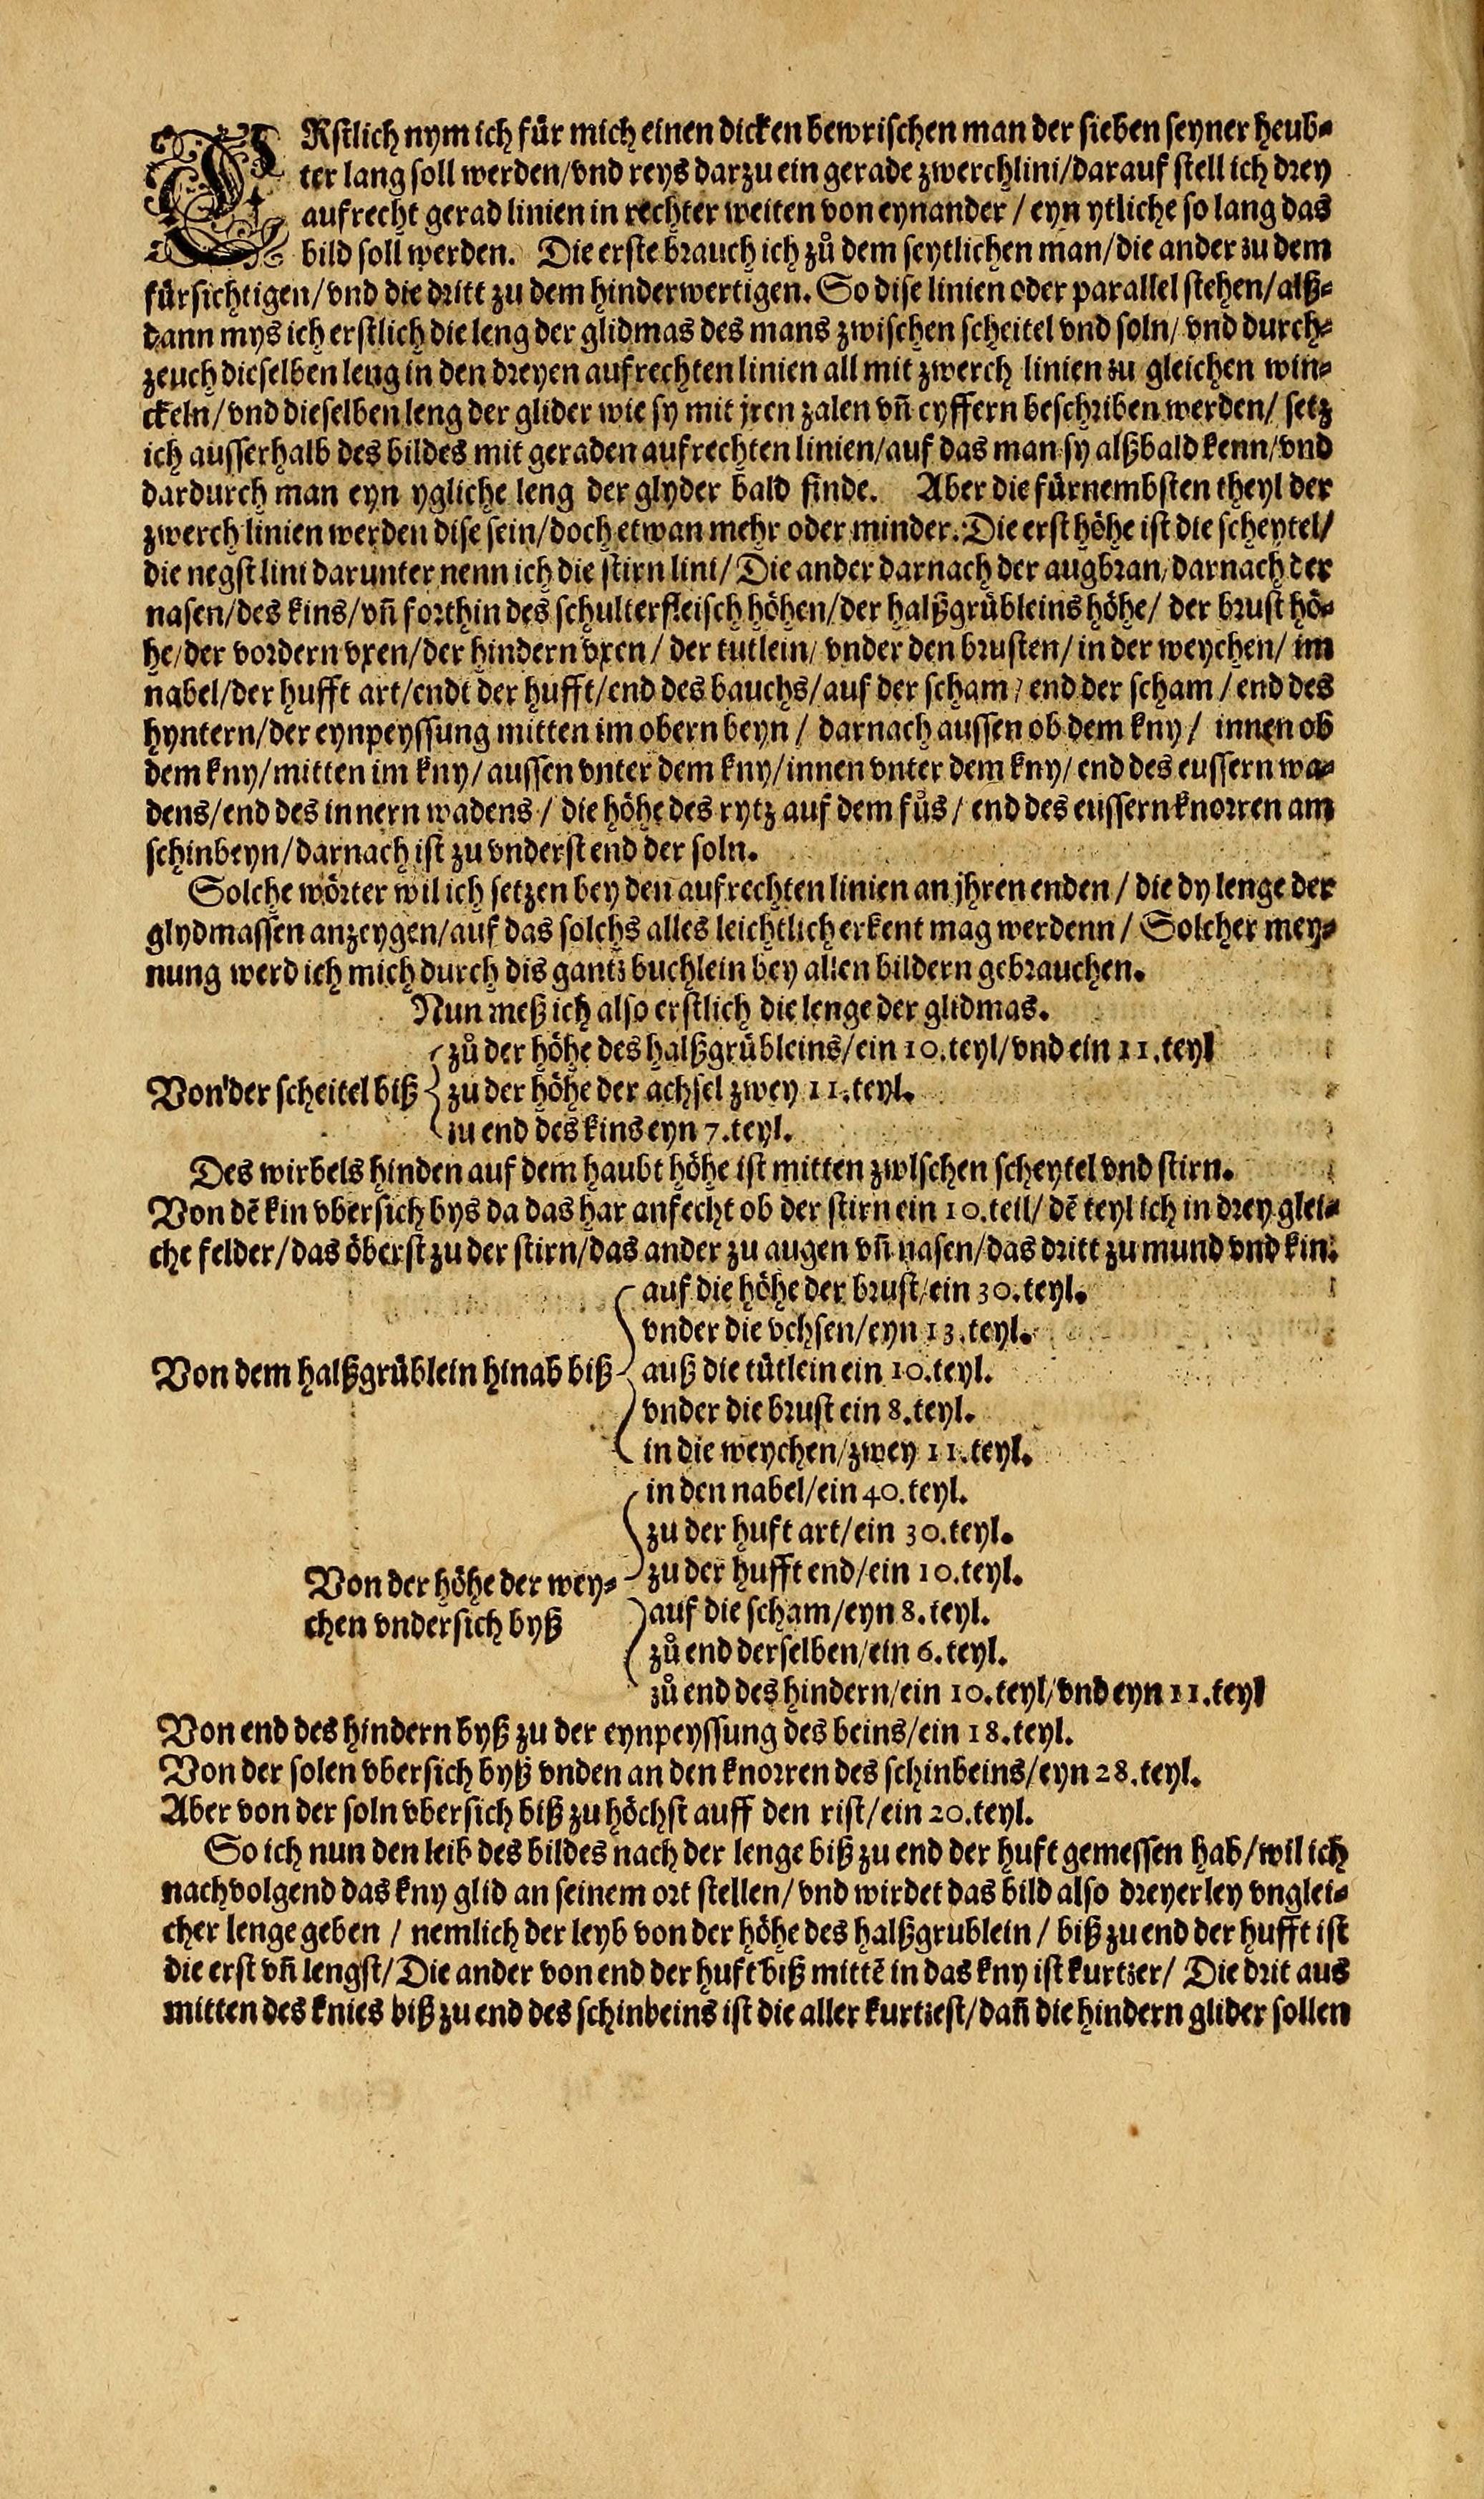 ERstlich nym ich für mich einen dicken bewrischen man der sieben seyner heub-
ter lang soll werden/vnd reys darzu ein gerade zwerchlini/darauf stell ich drey
aufrecht gerad linien in rechter weiten von eynander / eyn ytliche so lang das
bild soll werden. Die erste brauch ich zů dem seytlichen man/die ander zu dem
fürsichtigen/vnd die dritt zu dem hinderwertigen. So dise linien oder parallel stehen/alß-
dann mys ich erstlich die leng der glidmas des mans zwischen scheitel vnd soln/ vnd durch-
zeuch dieselben leng in den dreyen aufrechten linien all mit zwerch linien zu gleichen win-
ckeln/vnd dieselben leng der glider wie sy mit jren zalen vn̄ cyffern beschriben werden/ setz
ich ausserhalb des bildes mit geraden aufrechten linien/auf das man sy alßbald kenn/vnd
dardurch man eyn ygliche leng der glyder bald finde. Aber die fürnembsten theyl der
zwerch linien werden dise sein/doch etwan mehr oder minder. Die erst höhe ist die scheytel/
die negst lini darunter nenn ich die stirn lini/ Die ander darnach der augbran/darnach der
nasen/des kins/vn̄ forthin des schulterfleisch höhen/der halßgrübleins höhe/ der brust hö-
he/der vordern vxen/der hindern vxen/ der tutlein/ vnder den brusten/ in der weychen/ im
nabel/der hufft art/endt der hufft/end des bauchs/auf der scham/ end der scham / end des
hyntern/der eynpeyssung mitten im obern beyn / darnach aussen ob dem kny / innen ob
dem kny/mitten im kny/aussen vnter dem kny/innen vnter dem kny/ end des eussern wa-
dens/end des innern wadens / die höhe des rytz auf dem fůs / end des eussern knorren am
schinbeyn/darnach ist zu vnderst end der soln.
Solche wörter wil ich setzen bey den aufrechten linien an jhren enden / die dy lenge der
glydmassen anzeygen/auf das solchs alles leichtlich erkent mag werdenn / Solcher mey-
nung werd ich mich durch dis gantz buchlein bey allen bildern gebrauchen.
Nun meß ich also erstlich die lenge der glidmas.
zů der höhe des halßgrübleins/ein 10.teyl/vnd ein 11.teyl
Von der scheitel biß zu der höhe der achsel zwey 11.teyl.
zu end des kins eyn 7.teyl.
Des wirbels hinden auf dem haubt höhe ist mitten zwischen scheytel vnd stirn.
Von dē kin vbersich bys da das har anfecht ob der stirn ein 10.teil/ dē teyl ich in drey glei-
che felder/das öberst zu der stirn/das ander zu augen vn̄ nasen/das dritt zu mund vnd kin.
auf die höhe der brust/ein 30.teyl.
vnder die vchsen/eyn 13.teyl.
Von dem halßgrüblein hinab biß auß die tütlein ein 10.teyl.
vnder die brust ein 8.teyl.
in die weychen/zwey 11.teyl.
in den nabel/ein 40.teyl.
zu der huft art/ein 30.teyl.
Von der höhe der wey- zu der hufft end/ein 10.teyl.
chen vndersich byß auf die scham/eyn 8.teyl.
zů end derselben/ein 6.teyl.
zů end des hindern/ein 10.teyl/vnd eyn 11.teyl
Von end des hindern byß zu der eynpeyssung des beins/ein 18.teyl.
Von der solen vbersich byß vnden an den knorren des schinbeins/eyn 28.teyl.
Aber von der soln vbersich biß zu höchst auff den rist/ein 20.teyl.
So ich nun den leib des bildes nach der lenge biß zu end der huft gemessen hab/wil ich
nachvolgend das kny glid an seinem ort stellen/vnd wirdet das bild also dreyerley vnglei-
cher lenge geben / nemlich der leyb von der höhe des halßgrublein / biß zu end der hufft ist
die erst vn̄ lengst/Die ander von end der huft biß mittē in das kny ist kurtzer/ Die drit aus
mitten des knies biß zu end des schinbeins ist die aller kurtzest/dan̄ die hindern glider sollen